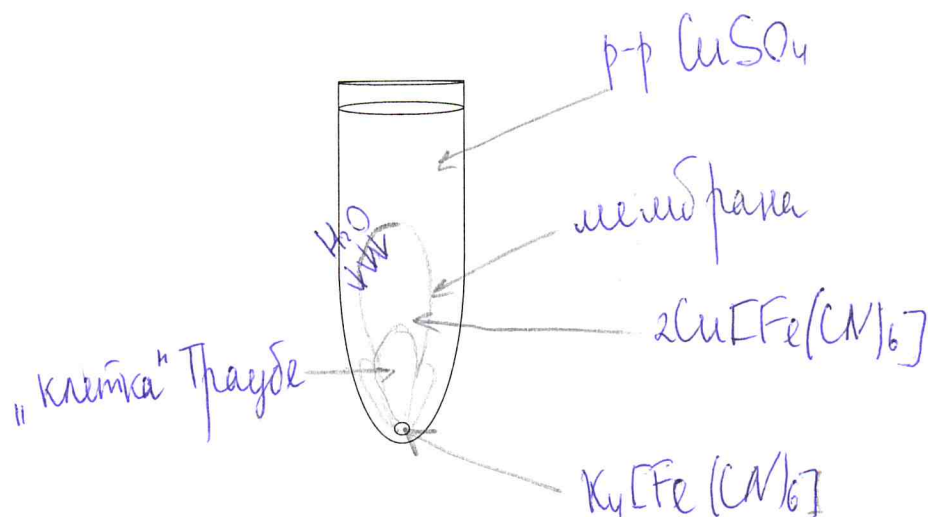 р-р CuSO₄
мембрана
H₂O
2Cu[Fe(CN)₆]
„клетка" Траубе
K₄[Fe(CN)₆]